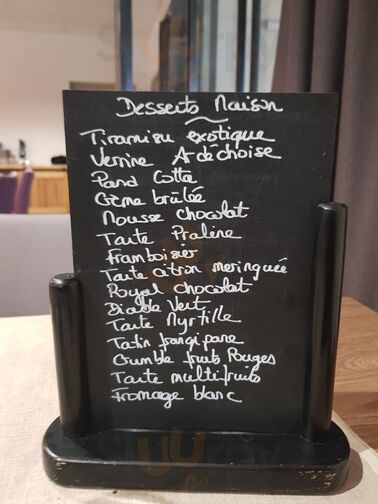 Desserts Maison
Tiramisu exotique
Verrine Ardéchoise
Pana Cotta
Crème brûlée
Mousse chocolat
Tarte Praline
Framboisier
Tarte citron meringuée
Royal chocolat
Diable Vert
Tarte Myrtille
Tatin frangipane
Crumble fruits Rouges
Tarte multifruits
Fromage blanc